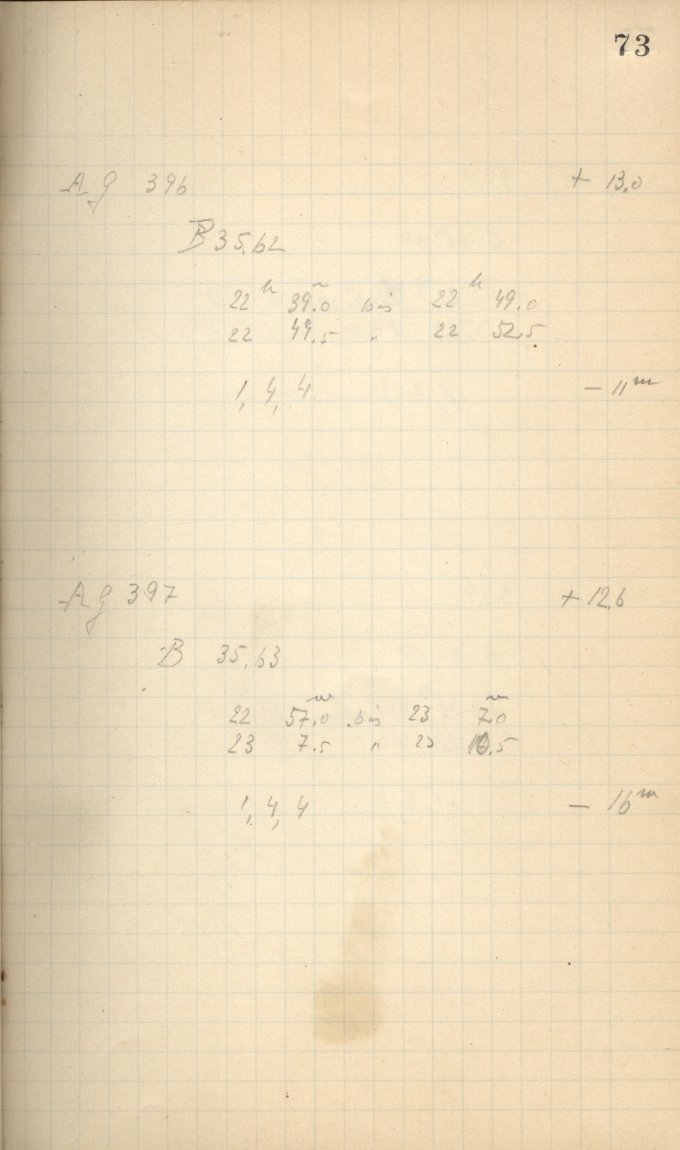 73
A g 396 + 13.0
B 35.62
22 h 39.0 m bis 22 h 49.0
22 49.5 " 22 52.5
1, 4, 4 - 11 m
A g 397 + 12.6
B 35.63
22 57.0 m bis 23 7.0 m
23 7.5 " 23 10.5
1, 4, 4 - 16 m